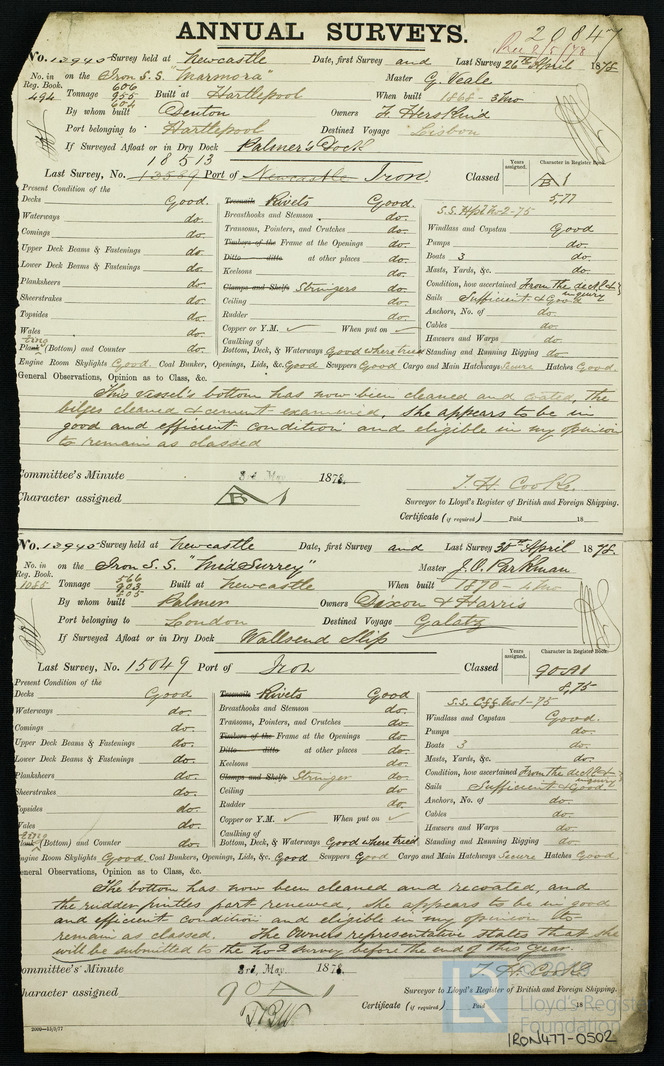 ANNUAL SURVEYS.
20847
No. 12940 Survey held at Newcastle Date, first Survey and Last Survey 26th April 1878
No. in Reg. Book. 494 on the Iron S.S. "Marmora" Master G. Neale
606
Tonnage 955 Built at Hartlepool When built 1868 - 3 mo
604
By whom built Denton Owners F. Herskind
Port belonging to Hartlepool Destined Voyage Lisbon
If Surveyed Afloat or in Dry Dock Palmer's Dock
18513
Last Survey, No. Port of Newcastle Iron. Classed
Years assigned. Character in Register Book.
A 1
5,77
Present Condition of the
Decks Good
Waterways do.
Comings do.
Upper Deck Beams & Fastenings do.
Lower Deck Beams & Fastenings do.
Planksheers do.
Sheerstrakes do.
Topsides do.
Wales do.
Plank (Bottom) and Counter do.
Treenails Rivets Good.
Breasthooks and Stemson do.
Transoms, Pointers, and Crutches do.
Timbers of the Frame at the Openings do.
Ditto ditto at other places do.
Keelsons do.
Clamps and Shelfs Stringers do.
Ceiling do.
Rudder do.
Copper or Y.M. ✓ When put on ✓
Caulking of
Bottom, Deck, & Waterways Good where tried
S.S. Hpl No 2-75
Windlass and Capstan Good
Pumps do.
Boats 3 do.
Masts, Yards, &c. do.
Condition, how ascertained From the deck & inquiry
Sails Sufficient & Good
Anchors, No. of do.
Cables do.
Hawsers and Warps do.
Standing and Running Rigging do.
Engine Room Skylights Good. Coal Bunker, Openings, Lids, &c. Good Scuppers Good Cargo and Main Hatchways Secure Hatches Good
General Observations, Opinion as to Class, &c.
This vessel's bottom has now been cleaned and coated, the
bilges cleaned & cement examined, she appears to be in
good and efficient condition and eligible in my opinion
to remain as classed
Committee's Minute 3rd May 1878.
Character assigned A 1
T. H. Cooke.
Surveyor to Lloyd's Register of British and Foreign Shipping.
Certificate (if required) Paid 18
No. 12940 Survey held at Newcastle Date, first Survey and Last Survey 30th April 1878.
No. in Reg. Book. 1085 on the Iron S.S. "Mid Surrey" Master J.O. Parkman
566
Tonnage 903 Built at Newcastle When built 1870 - 4 mo
805
By whom built Palmer Owners Dixon & Harris
Port belonging to London Destined Voyage Galatz
If Surveyed Afloat or in Dry Dock Wallsend Slip
Last Survey, No. 15049 Port of Iron Classed
Years assigned. Character in Register Book.
90A1
8,75
Present Condition of the
Decks Good
Waterways do.
Comings do.
Upper Deck Beams & Fastenings do.
Lower Deck Beams & Fastenings do.
Planksheers do.
Sheerstrakes do.
Topsides do.
Wales do.
Plank (Bottom) and Counter do.
Treenails Rivets Good
Breasthooks and Stemson do.
Transoms, Pointers, and Crutches do.
Timbers of the Frame at the Openings do.
Ditto ditto at other places do.
Keelsons do.
Clamps and Shelfs Stringer do.
Ceiling do.
Rudder do.
Copper or Y.M. ✓ When put on ✓
Caulking of
Bottom, Deck, & Waterways Good where tried
S.S. No 1-75
Windlass and Capstan Good.
Pumps do.
Boats 3 do.
Masts, Yards, &c. do.
Condition, how ascertained From the deck & inquiry
Sails Sufficient & Good.
Anchors, No. of do.
Cables do.
Hawsers and Warps do.
Standing and Running Rigging do.
Engine Room Skylights Good. Coal Bunkers, Openings, Lids, &c. Good Scuppers Good Cargo and Main Hatchways Secure Hatches Good
General Observations, Opinion as to Class, &c.
The bottom has now been cleaned and recoated, and
the rudder pintles part renewed, she appears to be in good
and efficient condition and eligible in my opinion to
remain as classed. The Owners representative states that she
will be submitted to the No 2 survey before the end of this year.
Committee's Minute 3rd May 1878.
Character assigned 90A1
T. H. Cooke.
Surveyor to Lloyd's Register of British and Foreign Shipping.
Certificate (if required) Paid 18
Lloyd's Register
Foundation
IRON477-0502